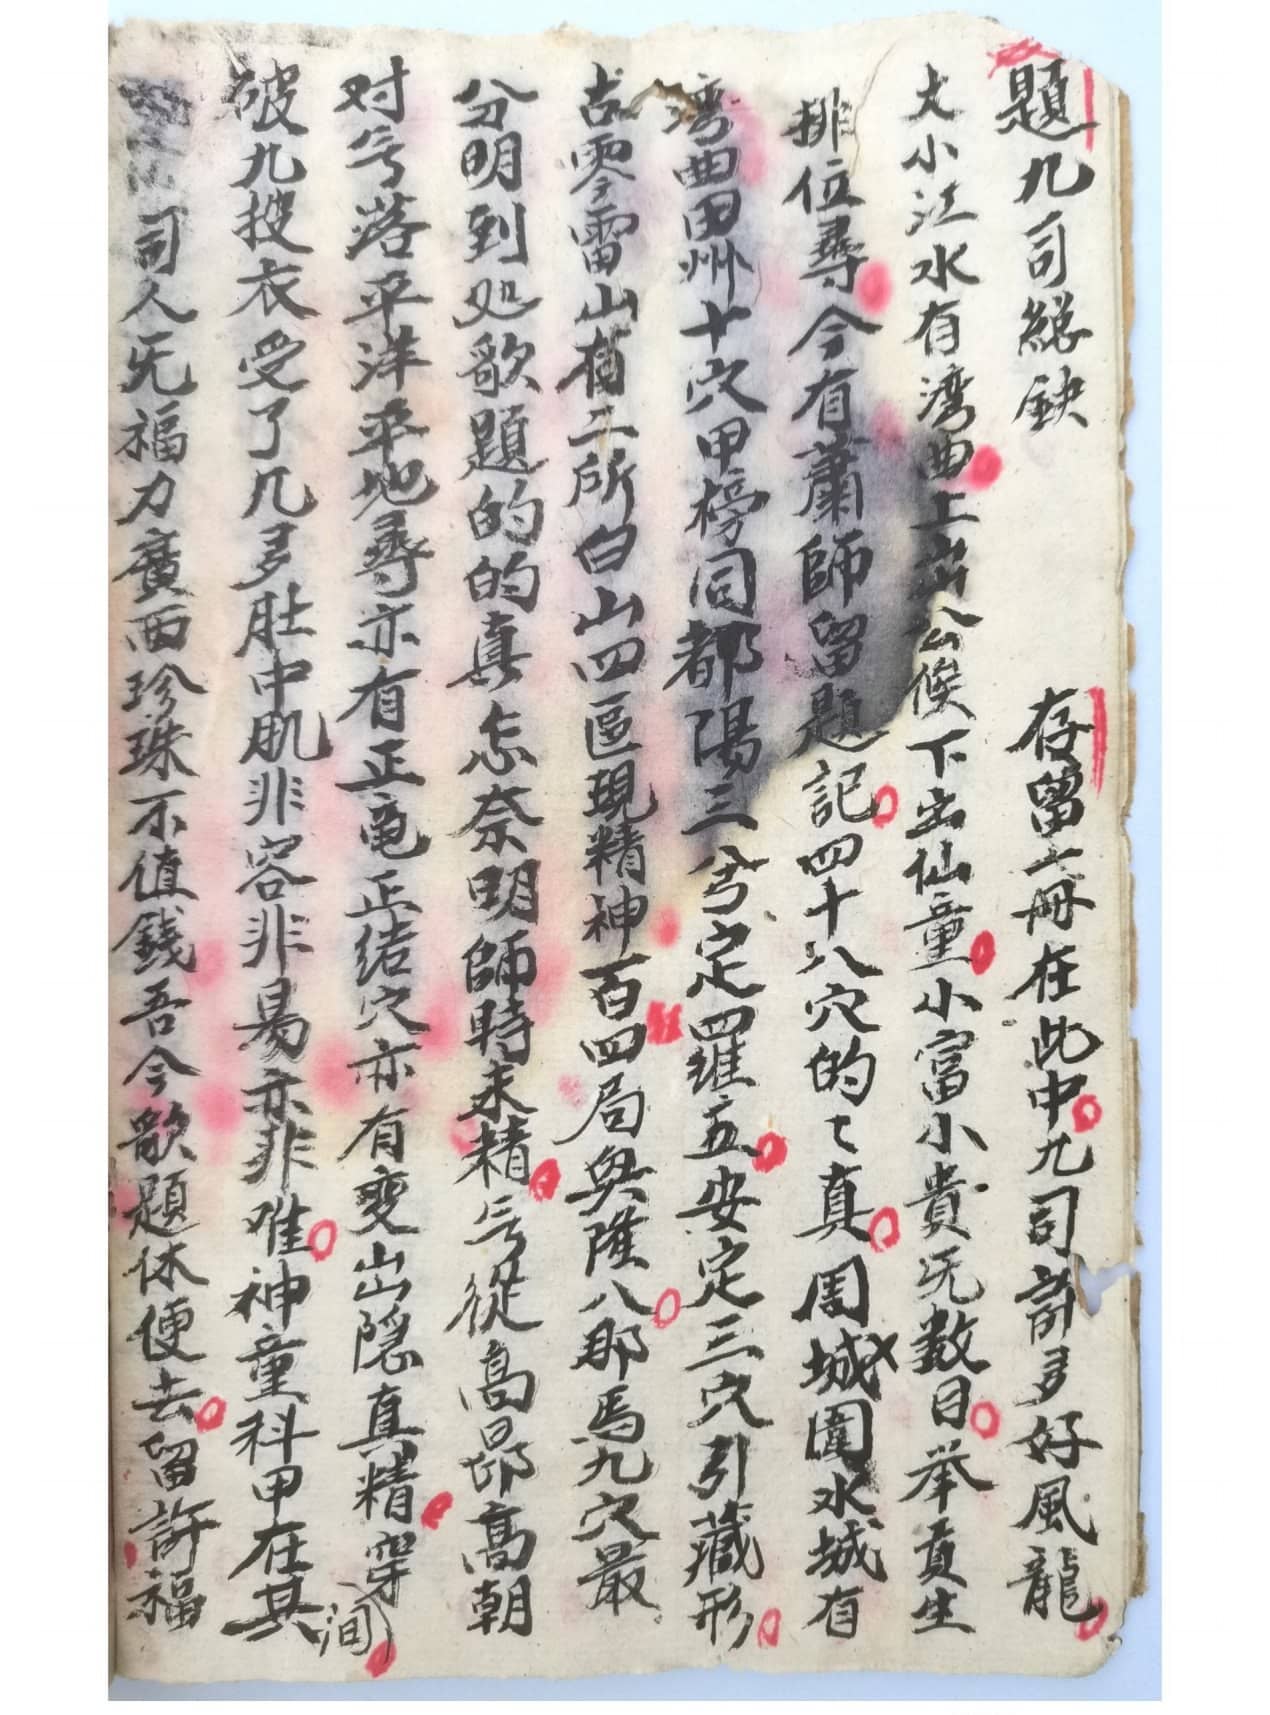 題九司總訣 存留一冊在此中九司許多好風龍
大小江水有湾曲上出公候下出仙童小富小貴旡数目举貢生
排位尋今有蕭師留題記四十八穴的〻真周城圍水城有
湾曲田州十穴甲榜同都陽三兮定羅五安定三穴引藏形
古零雷山有二所白山四區現精神百四局興隆八那馬九穴最
分明到处歌題的的真怎奈明師時未精兮從高昂高朝
对兮落平洋平地尋亦有正竜正结穴亦有变出隐真精穿
破九搜衣受了几多肚中肌非容非易亦非难神童科甲在其间
司人旡福力廣西珍珠不值錢吾今歌題休便去留許福